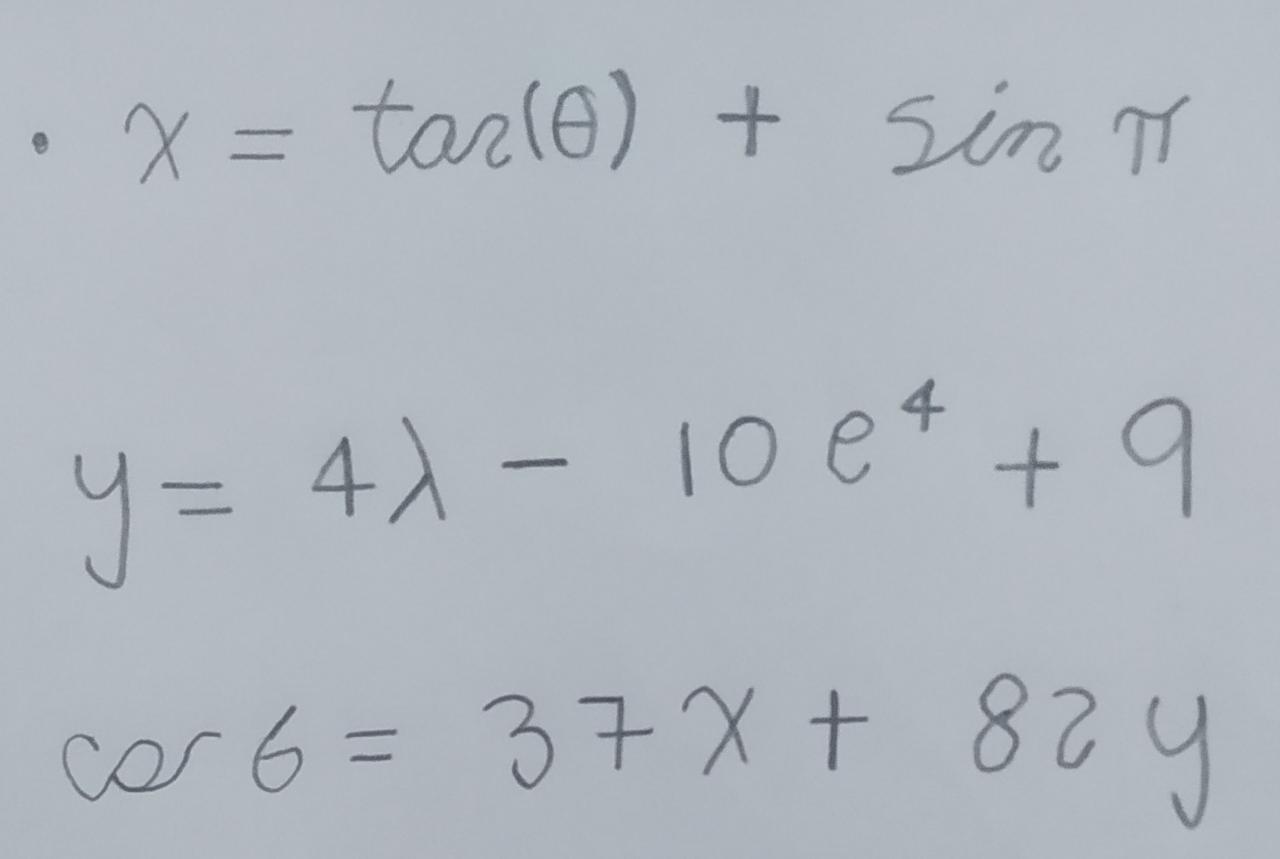 · x = tan(θ) + sin π
y = 4λ - 10 e⁴ + 9
cos 6 = 37x + 82y